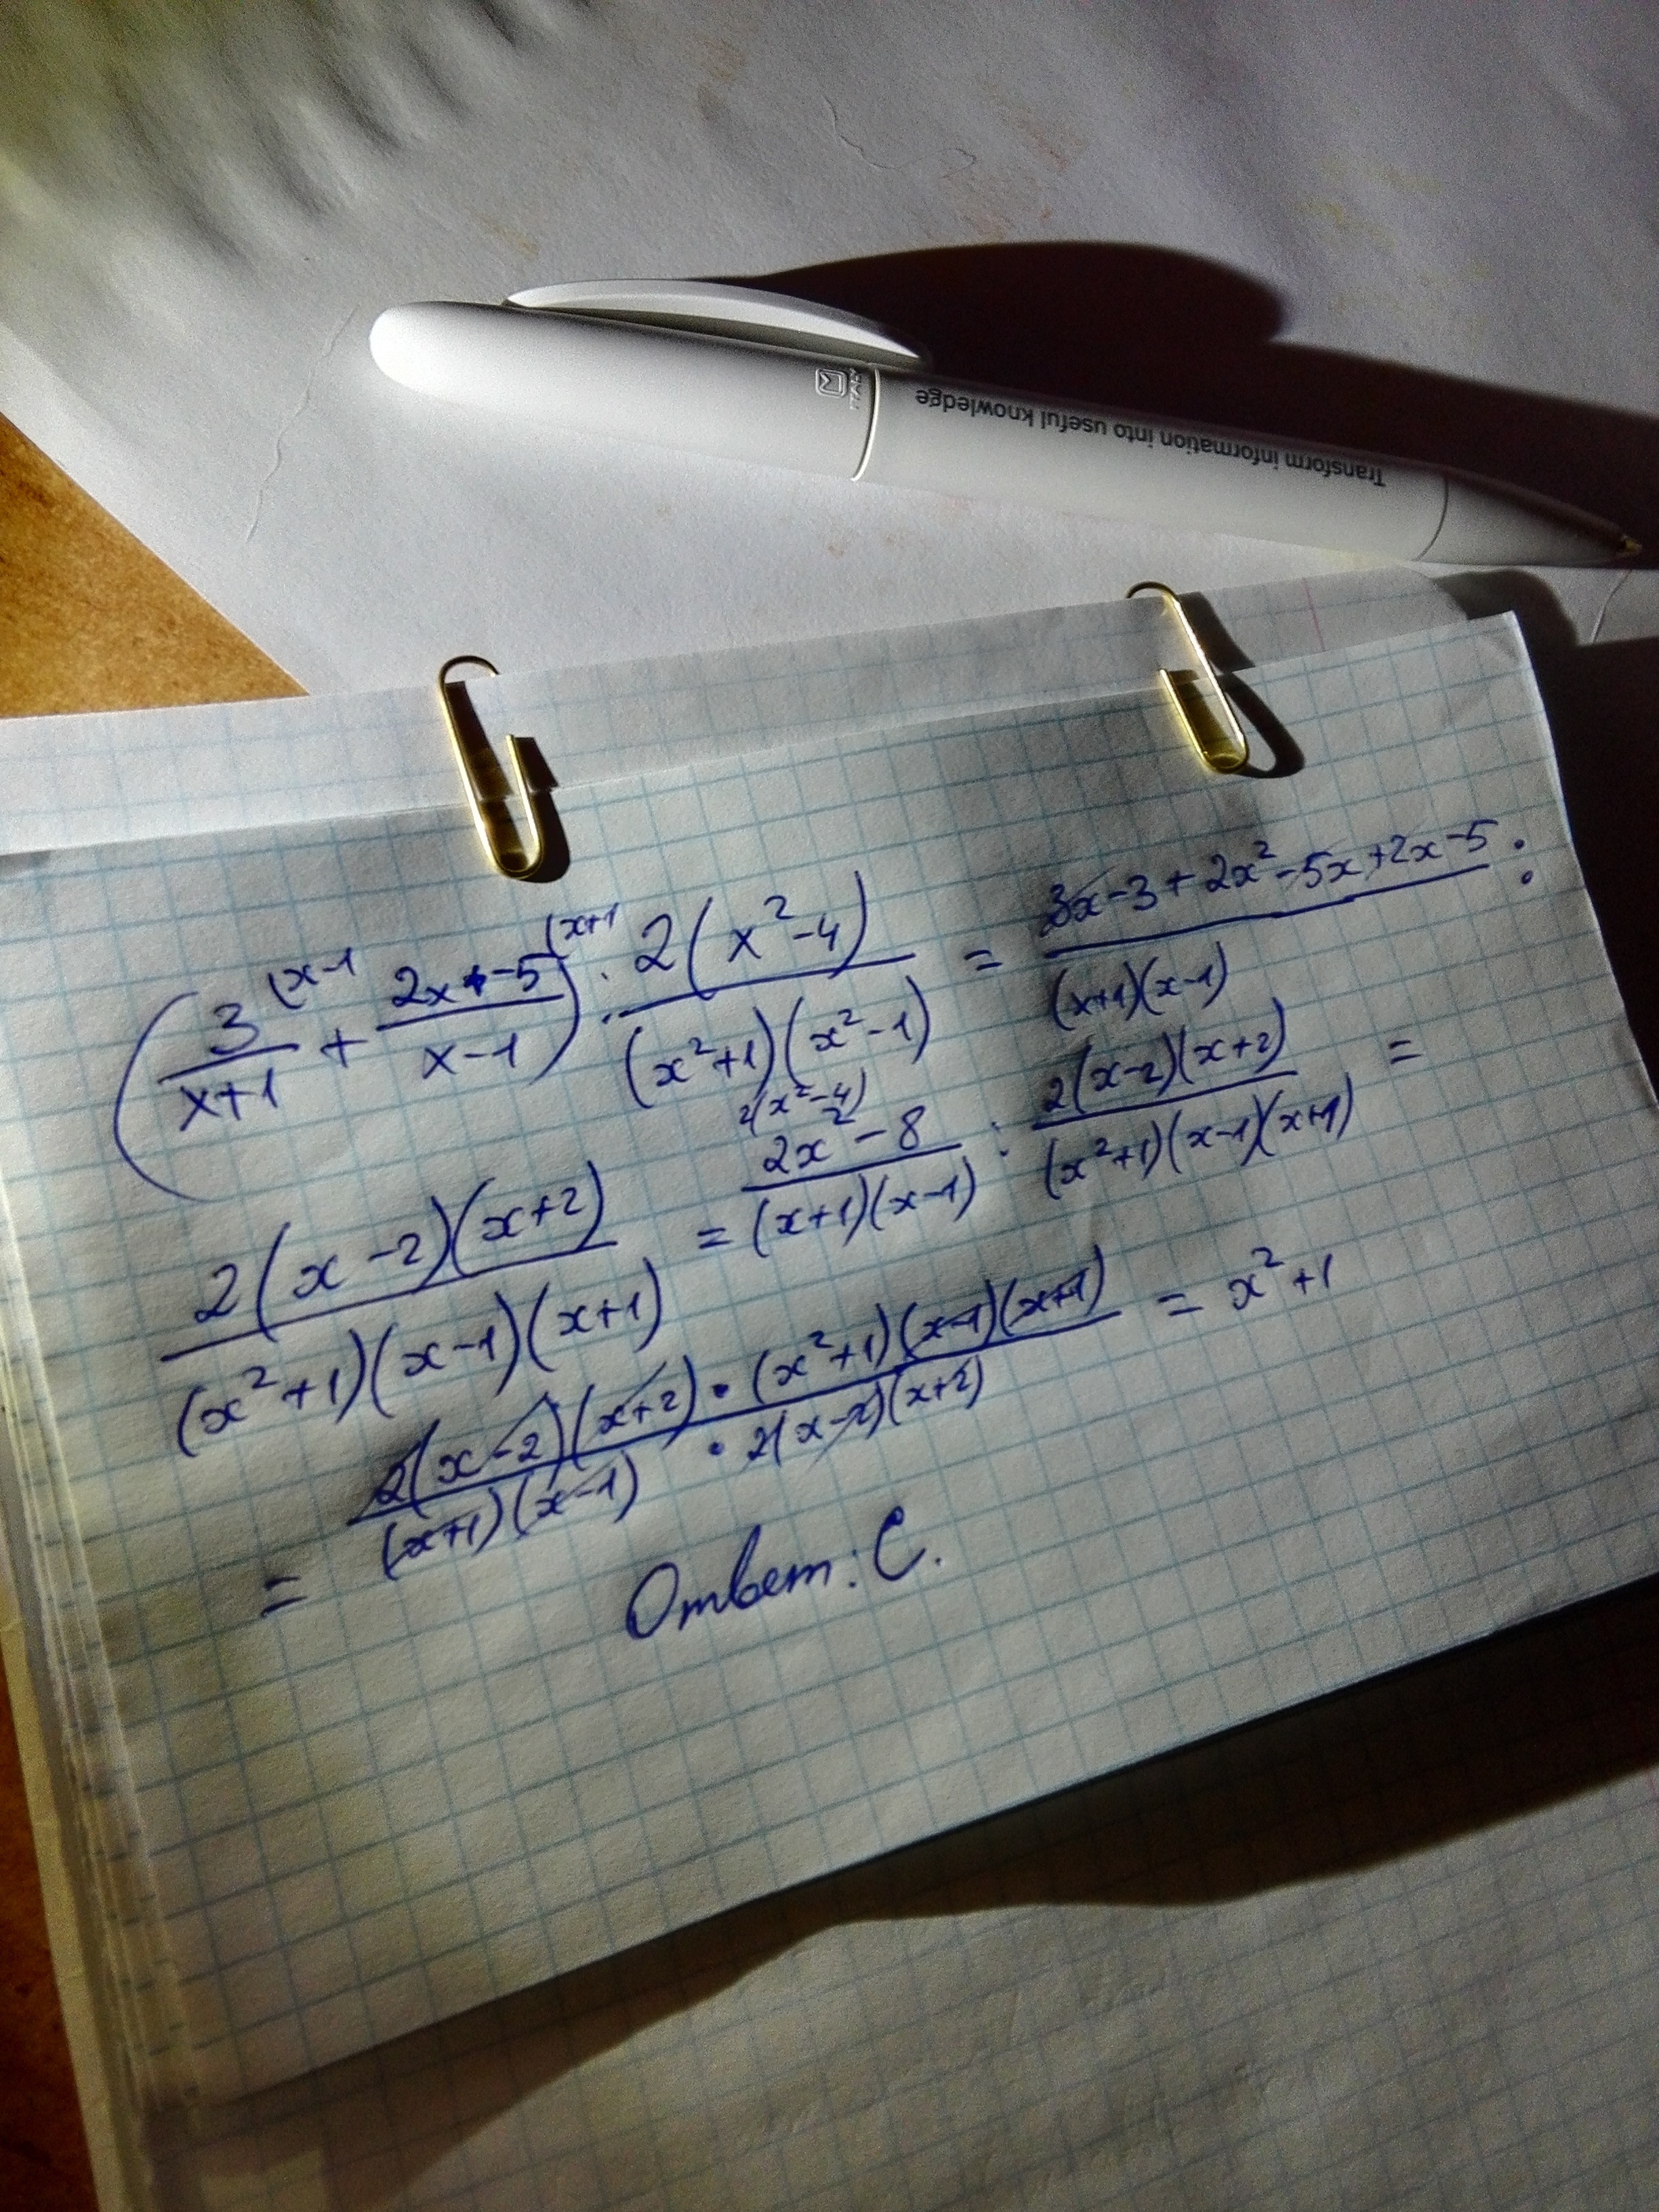 Transform information into useful knowledge
ITALY
( 3 (x-1 / x+1 + 2x-5 (x+1 / x-1 ) : 2(x²-4) / (x²+1)(x²-1) = 3x-3+2x²-5x+2x-5 / (x+1)(x-1) :
2(x-2)(x+2) / (x²+1)(x-1)(x+1) = 2(x²-4) 2x²-8 / (x+1)(x-1) : 2(x-2)(x+2) / (x²+1)(x-1)(x+1) =
= 2(x-2)(x+2) • (x²+1)(x-1)(x+1) / (x+1)(x-1) • 2(x-2)(x+2) = x²+1
Ответ: С.